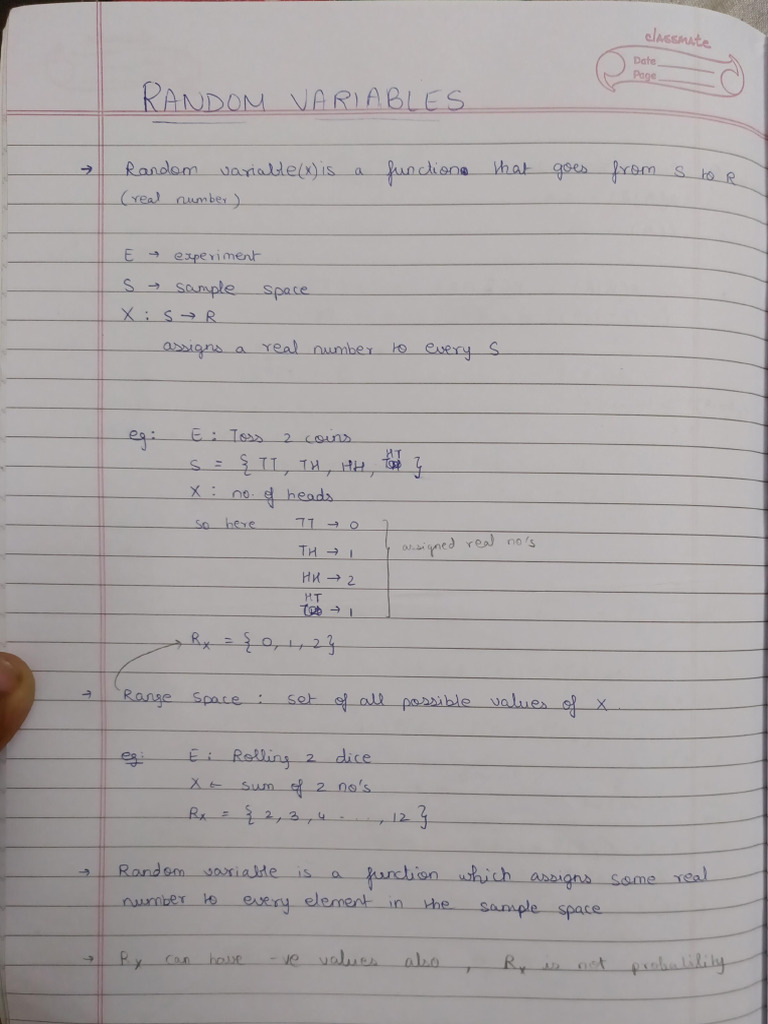 classmate
Date
Page
RANDOM VARIABLES
→ Random variable(x) is a function that goes from S to R
(real number)
E → experiment
S → sample space
X : S → R
assigns a real number to every S
eg: E : Toss 2 coins
S = { TT, TH, HH, HT }
X : no. of heads
so here TT → 0
TH → 1
assigned real no's
HH → 2
HT → 1
Rx = { 0, 1, 2 }
→ Range space : set of all possible values of X.
eg: E : Rolling 2 dice
X ← sum of 2 no's
Rx = { 2, 3, 4 ...., 12 }
→ Random variable is a function which assigns some real
number to every element in the sample space
→ Rx can have -ve values also, Rx is not probability